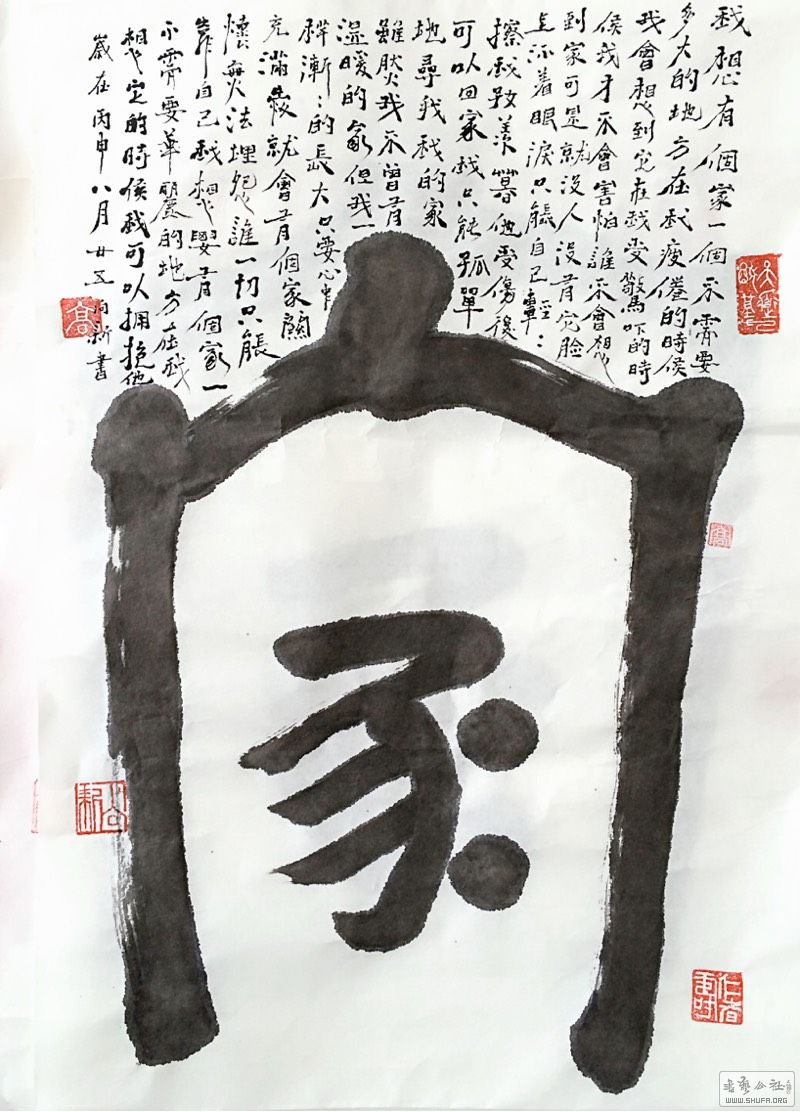 我想有個家一個不需要
多大的地方在我疲倦的時候
我會想到它在我受驚吓的時
候我才不會害怕誰不會想
到家可是就沒人沒有它臉
上流着眼淚只能自己輕:
擦我好羡慕他受傷後
可以回家我只能孤單
地尋我我的家
雖然我不曾有
溫暖的家但我一
样漸:的長大只要心中
充滿愛就會有個家關
懷無法埋怨誰一切只能
靠自己我想要有個家一
不需要華麗的地方在我
想它的時候我可以拥抱他
歲在丙申八月廿五向新書
高
家
書藝公社
WWW.SHUFA.ORG